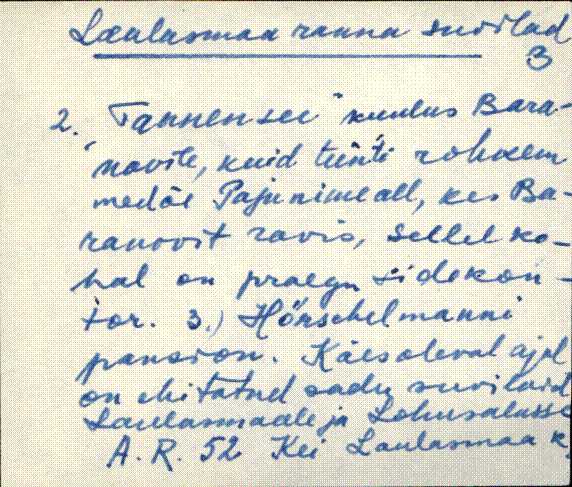 Laulasmaa ranna suvilad
3
2. "Tannensee" kuulus Bara-
novite, kuid tunti rohkem
medõe Paju nime all, kes Ba-
ranovit ravis, sellel ko-
hal on praegu sidekon-
tor. 3.) Hörschelmanni
pansion. Käesoleval ajal
on ehitatud sadu suvilaid
Laulasmaale ja Lohusalusse
A.R. 52 Kei Laulasmaa k.